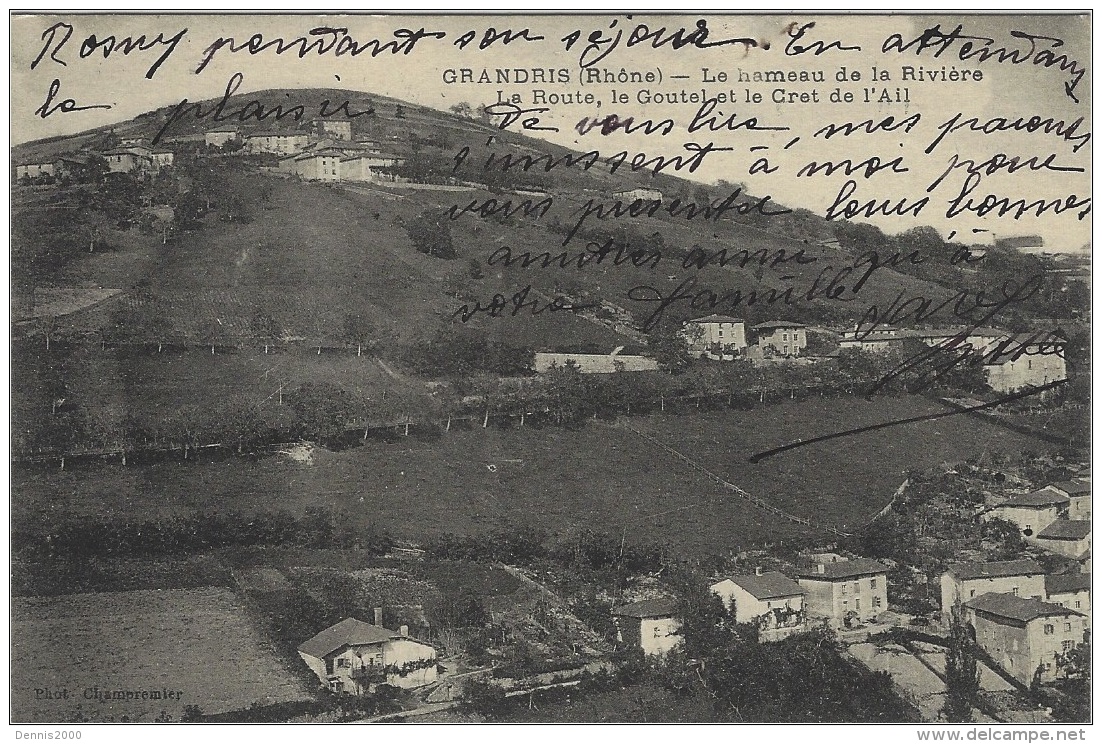 Rosny pendant son séjour. En attendant
le plaisir
GRANDRIS (Rhône) — Le hameau de la Rivière
La Route, le Goutel et le Cret de l'Ail
De vous lire, mes parents
s'unissent à moi pour
vous présenter leurs bonnes
amitiés ainsi qu'à
votre famille
Phot. Champremier
Dennis2000
www.delcampe.net